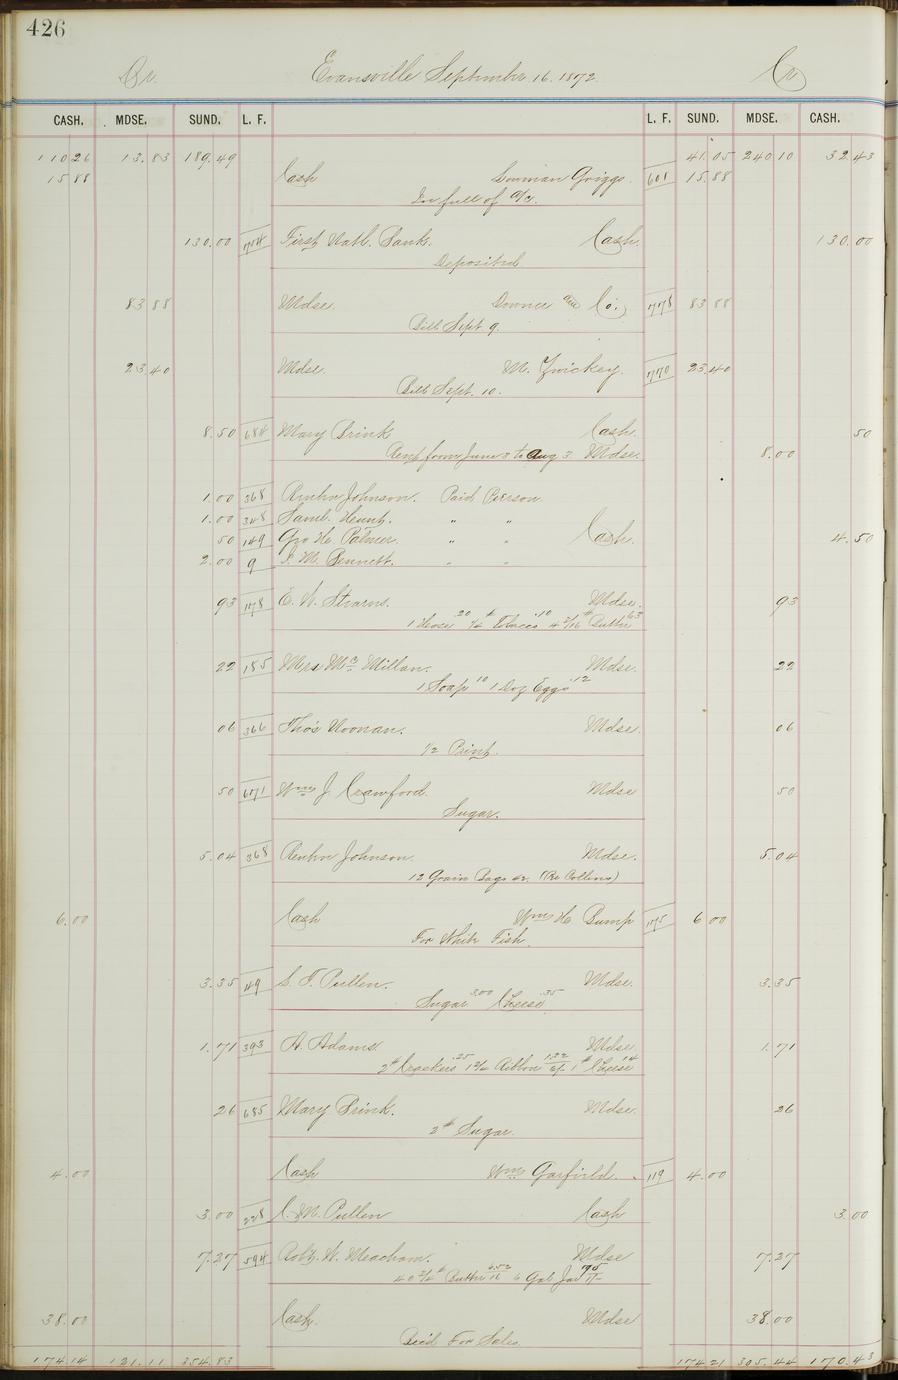 426
Dr. Evansville September 16. 1872. Cr
CASH. MDSE. SUND. L. F. L. F. SUND. MDSE. CASH.
110 26 13.83 189.49 41.05 240 10 32.43
15 88 Cash Griggs 601 15.88
In full of a/c.
130.00 704 First Natl. Bank. Cash 130.00
Deposited
83 88 Mdse. Downer and Co. 778 83 88
Bill Sept 9.
23.40 Mdse. M. Zwickey. 770 23.40
Bill Sept. 10.
8.50 684 Mary Brink Cash. 50
Rent from June 3 to Aug 3. Mdse. 8.00
1.00 368 Reuhn Johnson. Paid Pierson
1.00 348 Saml. Hunt. " "
50 149 Geo H. Palmer. " " Cash. 4.50
2.00 9 I. M. Bennett. " "
93 178 E. W. Stearns. Mdse. 93
1 Hose .20 ½ # Tobacco .10 4 3/16 # Butter 63
22 185 Mrs Mc Millan. Mdse. 22
1 Soap 10 1 Doz Eggs .12
06 366 Thos Noonan. Mdse. 06
1/2 Print.
50 671 Wm J. Crawford. Mdse 50
Sugar.
5.04 368 Reuhn Johnson. Mdse. 5.04
12 Grain Bags 42. (Re Collins)
6.00 Cash Wm H. Bump 175 6 00
For White Fish.
3.35 49 S. T. Pullen. Mdse. 3.35
Sugar 3.00 Cheese .35
1.71 393 A. Adams. Mdse 1.71
2# Crackers .25 Ribbon 1.32 1# Cheese 14
26 685 Mary Brink. Mdse. 26
2# Sugar.
4.00 Cash Wm Garfield. 119 4.00
3.00 228 C. M. Pullen Cash 3.00
7.27 594 Robt. W. Meacham. Mdse 7.27
40 3/4 # Butter 16 6.52 6 Gal Jar 75
38.00 Cash. Mdse 38.00
Recd For Sales.
174.14 121.11 354.83 174 21 305.44 170.43